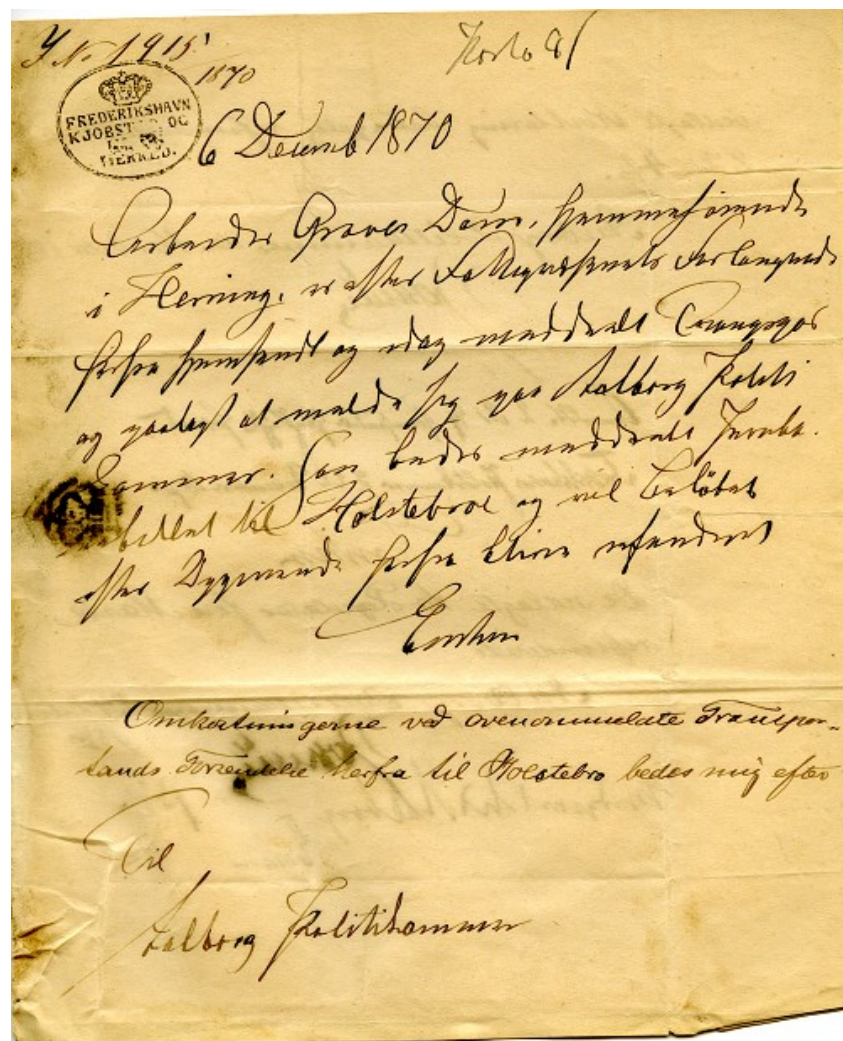 J No 1915
1870
FREDERIKSHAVN
KJØBSTAD OG
HERRED.
6 Decemb 1870
Arbeider Graver Dam, hjemmehørende
i Herning, er efter Fattigvæsenets Forlangende
herfra hjemsendt og idag meddeelt Tvangspas
og paalagt at melde sig paa Aalborg Politi
kammer. Han bedes meddeelt Jernba-
billet til Holstebroe og vil Beløbet
efter Opgivende herfra blive refunderet
Omkostningerne ved ovenommeldte Transpor-
tands Forsendelse herfra til Holstebro bedes mig efter
Til
Aalborg Politikammer